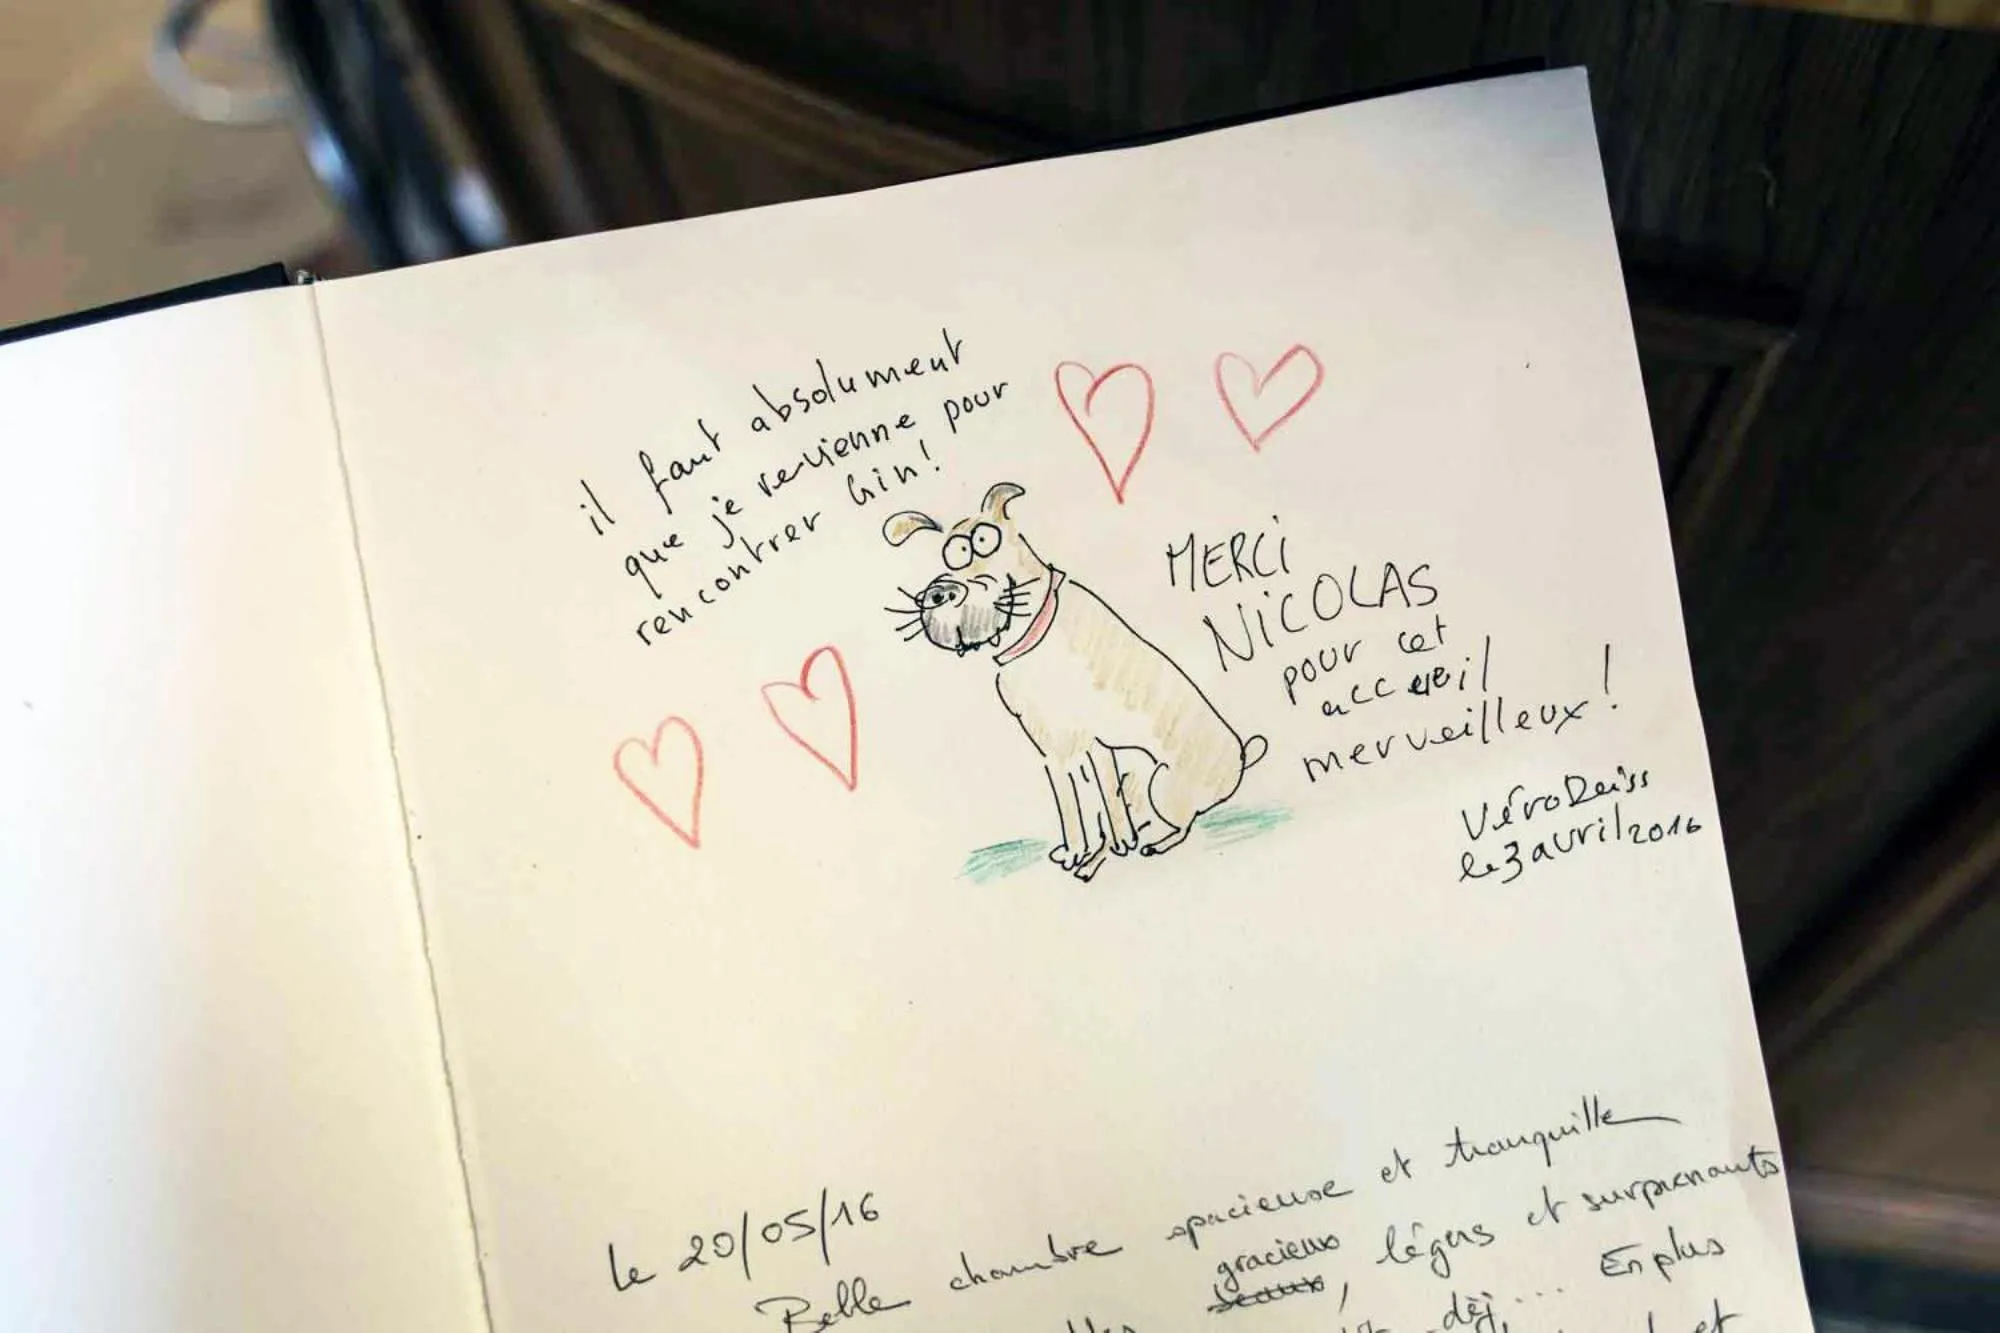 il faut absolument
que je revienne pour
rencontrer Gin!
MERCI
NICOLAS
pour cet
accueil
merveilleux!
Véro Deiss
le 3 avril 2016
le 20/05/16
Belle chambre spacieuse et tranquille
gracieux
beaux, légers et surprenants
déj... En plus
et